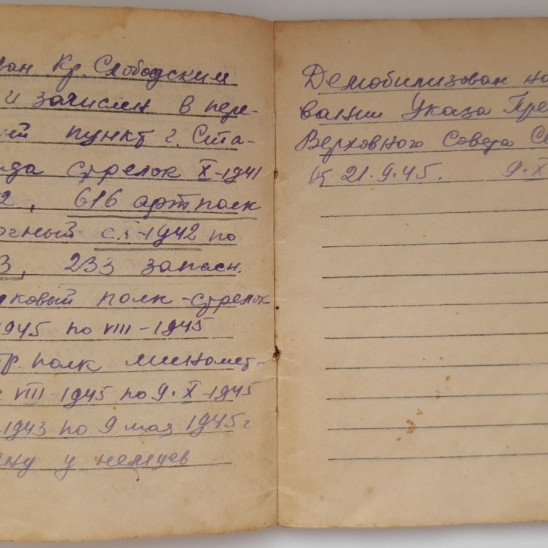 ван Кр. Слободским
и зачислен в пере-
ный пункт г. Ста-
да стрелок X-1941
2, 616 артполк
очный с I-1942 по
3, 233 запасн.
лковый полк-стрелок
1945 по VIII-1945
тр. полк миномет-
с VIII-1945 по 9.X-1945
-1943 по 9 мая 1945 г
ену у немцев
Демобилизован на
вании Указа Пре
Верховного Совета С
от 21.9.45. 9.X